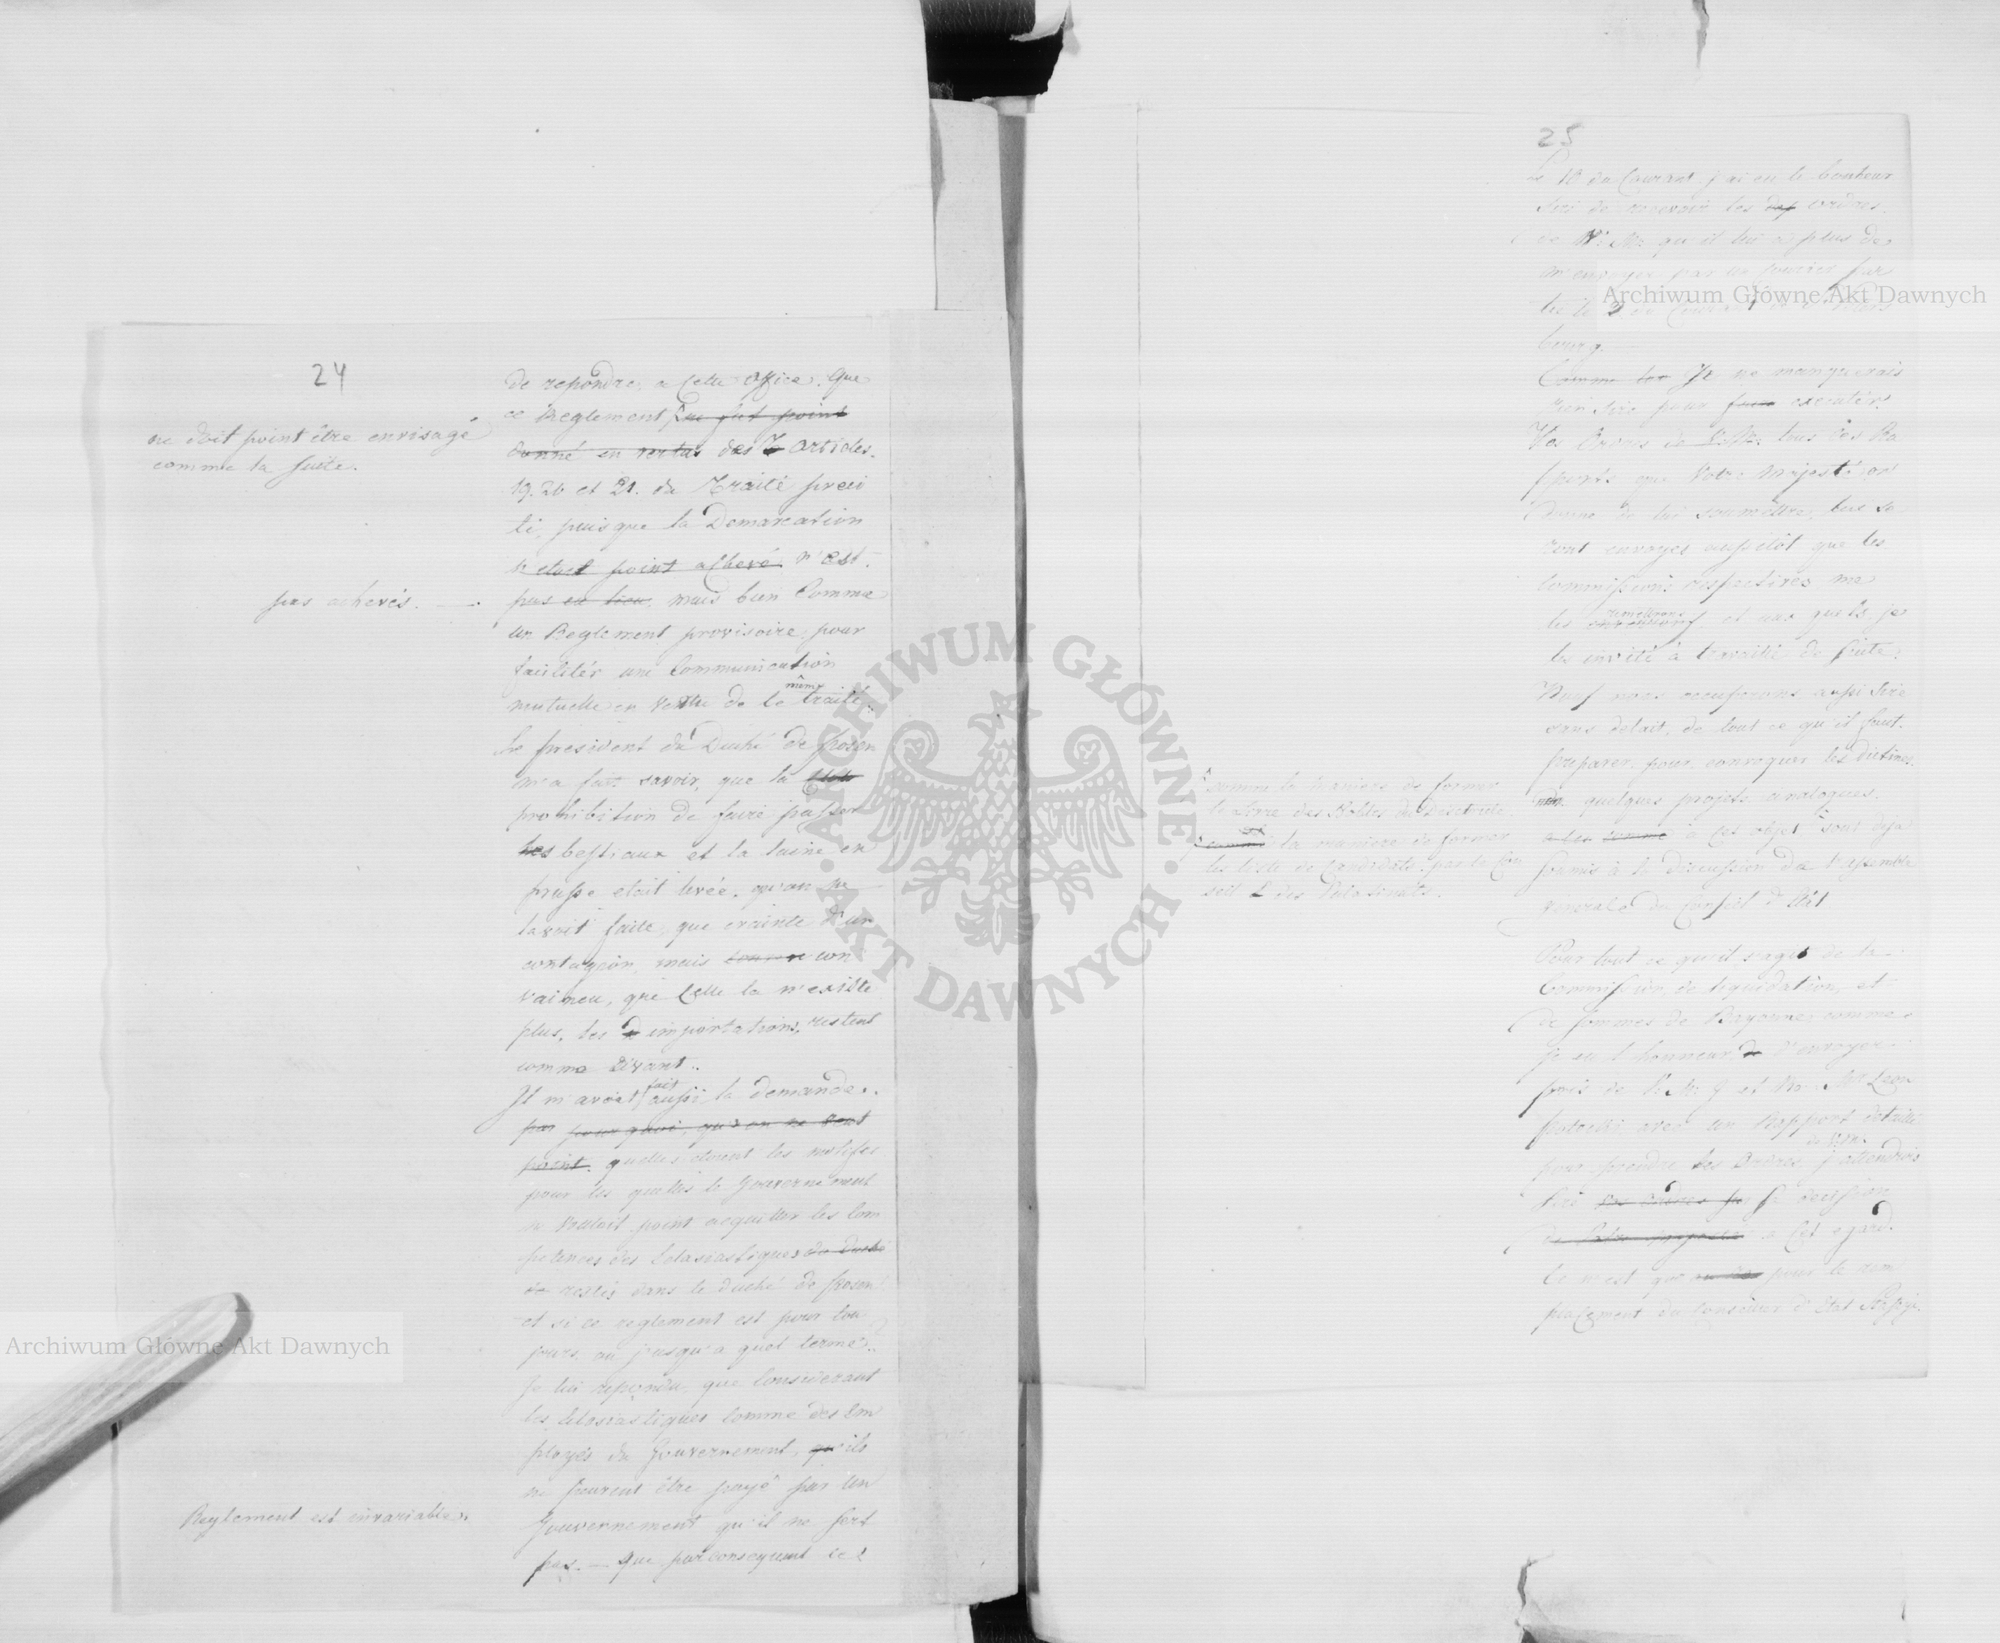 24
de repondre, a Cette Office. Que
ce Reglement que fut point
ne doit point être envisagé
comme la suite.
donné en vertus des 7 articles.
19. 20 et 21. du Traité preci
té, puisque la Demarcation
n'etoit point achevé n'est
pas achevés.
pas eu lieu, mais bien Comme
un Reglement provisoire, pour
facilitér une Communication
mutuelle en vertu de le même traité.
Le president du Duché de posen
m'a fait savoir, que la
prohibition de faire passer
les bestiaux et la laine en
prusse etoit levée. qu'on ne
lavoit faite, que crainte d'un
contagion, mais con
vaincu, que Celle la n'existe
plus, les importations, restent
comme divant.
Il m'avoit fait aussi la demande.
par pourquoi, qu'on ne veut
point. quelles etoient les motifes
pour les quelles le Gouvernement
ne vouloit point acquitter les Com
petences des Eclesiastiques du Duché
de restés dans le duché de posen
et si ce reglement est pour tou
jours, ou jusqu'a quel terme.
Je lui repondu, que Considerant
les Eclesiastiques Comme des Em
ployés du Gouvernement, qu'ils
ne peuvent être payé par un
Gouvernement qu'il ne sert
pas. — Que par consequent ce
Reglement est invariable.
25
Le 10 du Courant j'ai eu le bonheur
Sire de recevoir les des ordres
de V. M. qu'il lui a plus de
m'envoyer par un Courier par
ti le 2 du Courant de Peters
bourg.
Comme les Je ne manquerais
rien Sire pour executer
Vos Ordres de V. M. tous les Ra
ports que Votre Majesté or
donne de lui soumettre, lui se
ront envoyes aussitôt que les
Commissions respectives me
les remettrons et aux quels je
les invité à travaillé de suite.
Nous nous occuperons aussi Sire
sans delait, de tout ce qu'il faut
preparer pour convoquer les dietines
quelques projets analogues
comme la maniere de former
le Livre des Nobles du Districte
la maniere de former
les liste de Candidats par le Con
seil des Palatinats.
a cet objet sont deja
soumis à la discussion de l'assemblé
generale du Conseil d'Etat
Pour tout ce qu'il s'agit de la
Commission de liquidation, et
de sommes de Bayonne comme
j'eu l'honneur de l'envoyer
près de V. M. J. et Ro. Mr Leon
Potocki avec un Rapport detaillé
pour prendre les Ordres de V. M. j'attendrois
Sire vos ordres sa decision
de Votre Majesté a Cet egard.
Ce n'est que pour le rem
placement du Conseiller d'Etat